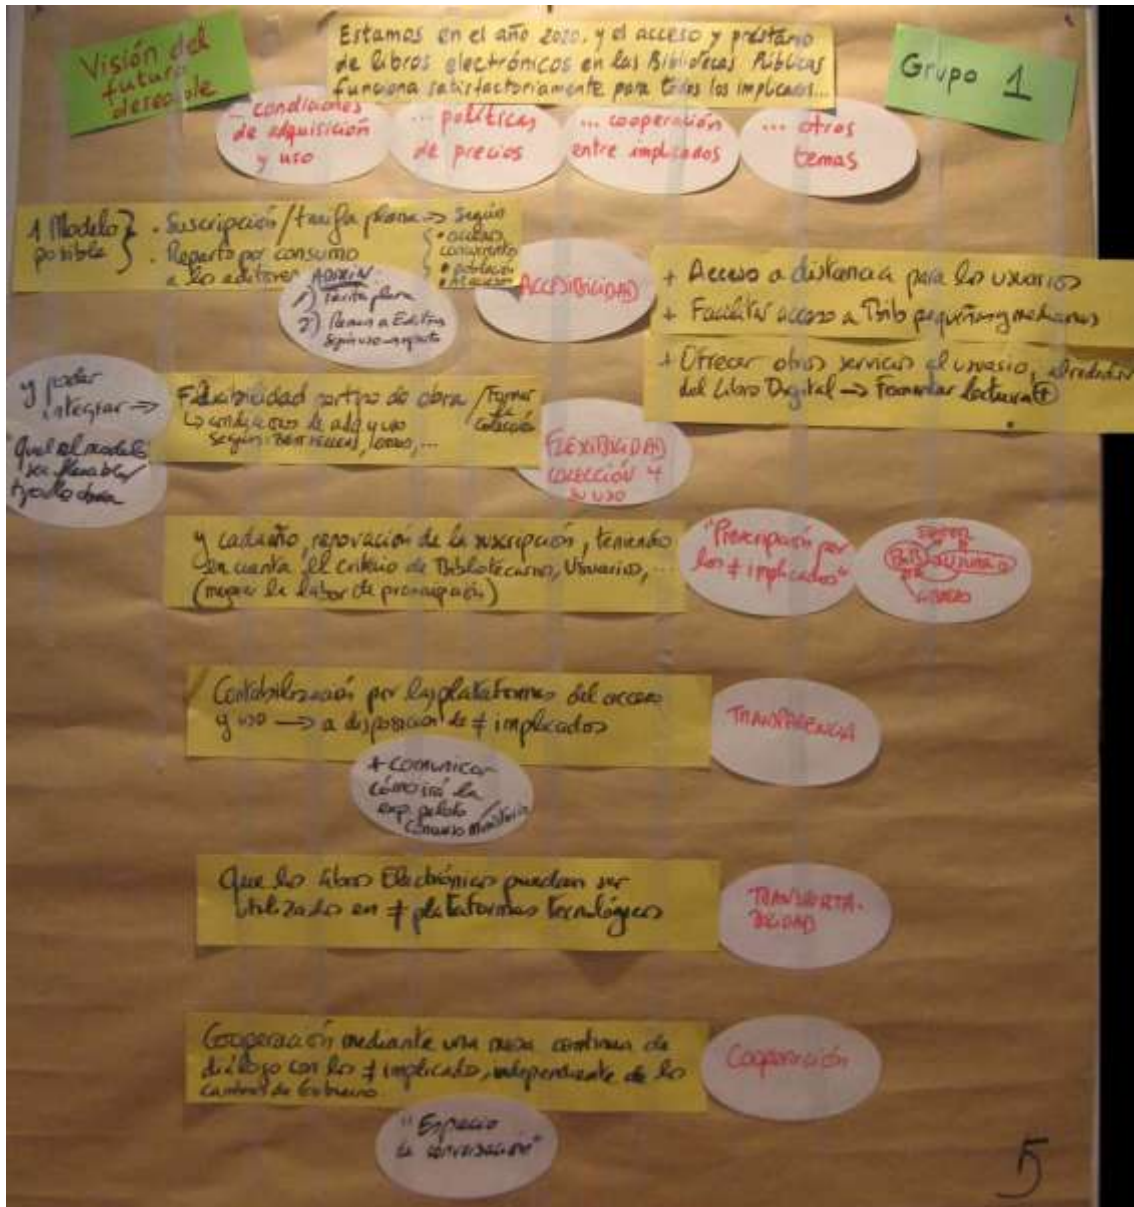 Visión del
futuro
deseable
Estamos en el año 2020, y el acceso y préstamo
de libros electrónicos en las Bibliotecas Públicas
funciona satisfactoriamente para todos los implicados...
Grupo 1
... condiciones
de adquisición
y uso
... políticas
de precios
... cooperación
entre implicados
... otros
temas
1 Modelo
posible
. Suscripción/tarifa plana → Según
. Reparto por consumo
a los editores
• acceso
concurrente
• población
1) Tarifa plana
2) a Editores
según uso
ACCESIBILIDAD
+ Acceso a distancia para los usuarios
+ Facilitar acceso a Bib pequeñas y medianas
+ Ofrecer otros servicios al usuario, alrededor
del Libro Digital → Fomentar lectura +
y poder
integrar →
Que el modelo
sea flexible/
tipo de obra
Flexibilidad por tipo de obra
↳ condiciones de adq y uso
según , ...
/ Formar
la
colección
FLEXIBILIDAD
COLECCIÓN Y
SU USO
y cada año, renovación de la suscripción, teniendo
en cuenta el criterio de Bibliotecarios, Usuarios, ...
(mejorar la labor de prescripción)
"Prescripción por
los ≠ implicados"
Bib
Contabilización por las plataformas del acceso
y uso → a disposición de ≠ implicados
TRANSPARENCIA
+ comunicar
cómo irá la
exp. piloto
Concurso Ministerio
Que los Libros Electrónicos puedan ser
utilizados en ≠ plataformas tecnológicas
Cooperación mediante una mesa continua de
diálogo con los ≠ implicado, independiente de los
cambios de Gobierno
Cooperación
"Espacio
de conversación"
5